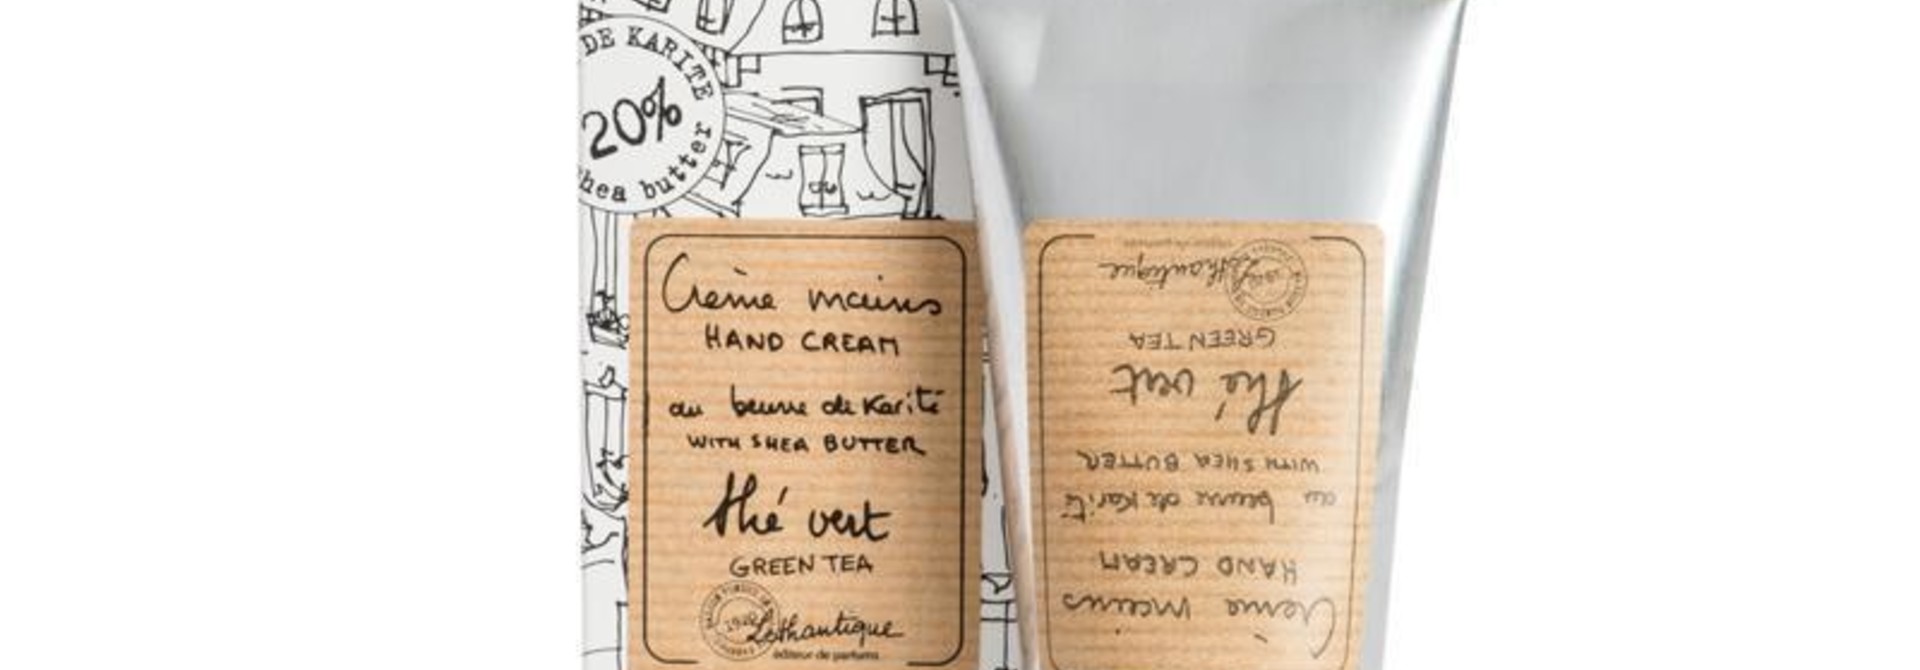 DE KARITE
20%
shea butter
Crème mains
HAND CREAM
au beurre de Karité
WITH SHEA BUTTER
thé vert
GREEN TEA
1920
Lothantique
éditeur de parfums
Lothantique
GREEN TEA
thé vert
WITH SHEA BUTTER
au beurre de Karité
HAND CREAM
Crème mains